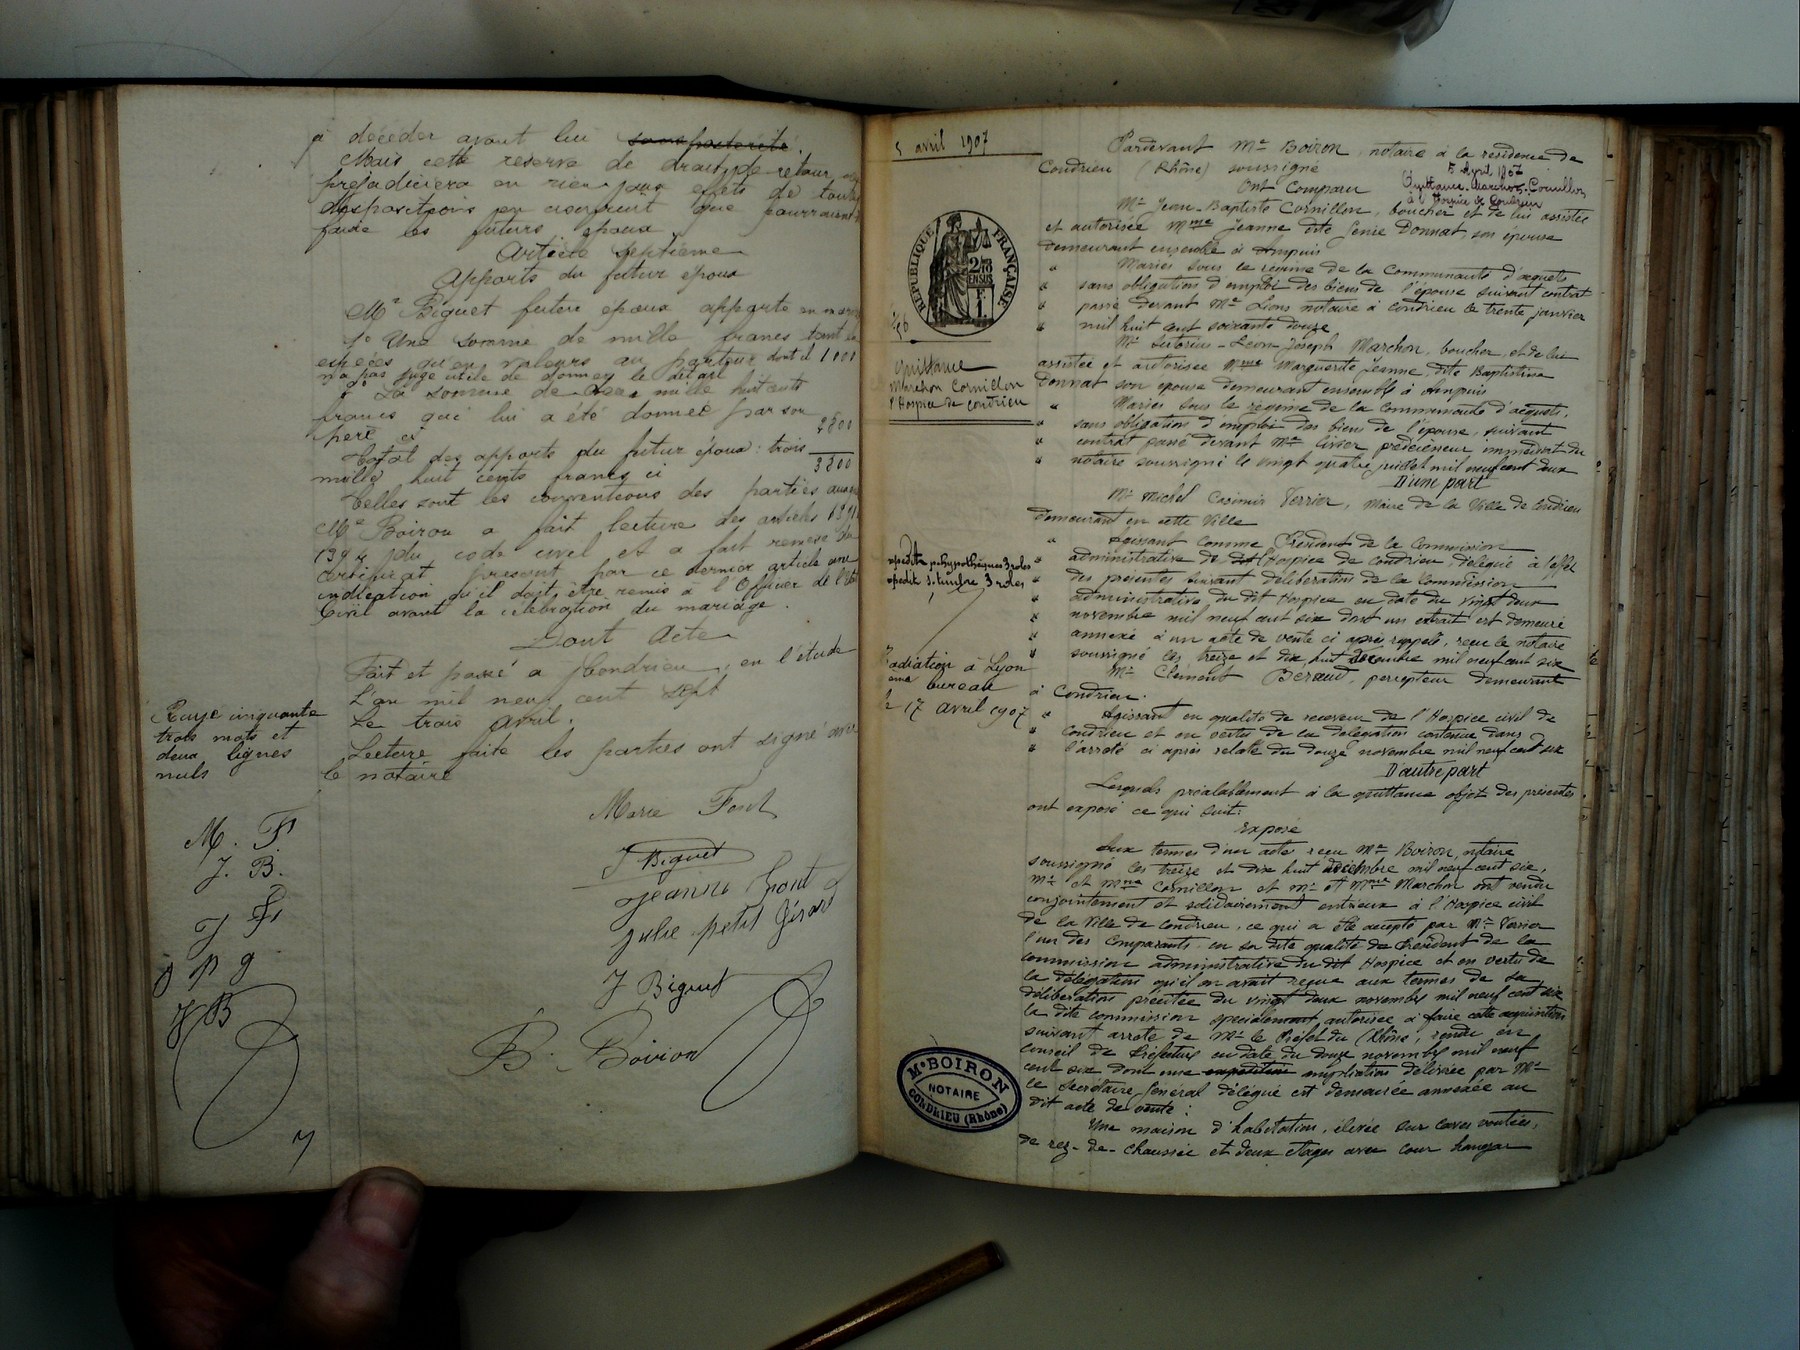 à décéder avant lui sans postérité.
Mais cette réserve de droit de retour ne
préjudiciera en rien aux effets de toutes
dispositions en usufruit que pourraient se
faire les futurs époux
Article Septième
Apports du futur époux
Mr Biguet futur époux apporte en mariage
1° Une somme de mille francs tant en
espèces qu'en valeurs au porteur dont il 1000
n'a pas jugé utile de donner le détail
2° La somme de deux mille huit cents
francs qui lui a été donnée par son
père ci 2800
Total des apports du futur époux : trois
mille huit cents francs ci 3800
Telles sont les conventions des parties
Me Boiron a fait lecture des articles 1391
1394 du code civil et a fait remise du
certificat prescrit par ce dernier article avec
indication qu'il doit être remis à l'Officier de l'état
Civil avant la célébration du mariage.
Dont Acte
Fait et passé à Condrieu, en l'étude
L'an mil neuf cent sept
Le trois avril.
Lecture faite les parties ont signé avec
le notaire
Rayé cinquante
trois mots et
deux lignes
nuls
M. F.
J. B.
J F
J P G
J B
Marie Font
J Biguet
Jeanne Font
Julie petit Gérard
J Biguet
B. Boiron
5 avril 1907
RÉPUBLIQUE FRANÇAISE
2/10
EN SUS
F.
Quittance
Marchon Cornillon
l'Hospice de Condrieu
expédité p. hypothèques 3 roles
expédit s. timbre 3 roles
Radiation à Lyon
bureau
le 17 avril 1907
Me BOIRON
NOTAIRE
CONDRIEU (Rhône)
Pardevant Me Boiron, notaire à la résidence de
Condrieu (Rhône) soussigné
5 Avril 1907
Ont Comparu
Quittance Marchon Cornillon
à l'Hospice de Condrieu
Mr Jean-Baptiste Cornillon, boucher et de lui assistée
et autorisée Mme Jeanne dite Génie Donnat, son épouse
demeurant ensemble à Ampuis
" Mariés sous le régime de la Communauté d'acquets
" sans obligation d'emploi des biens de l'épouse suivant contrat
" passé devant Me Lions notaire à Condrieu le trente janvier
" mil huit cent soixante douze
Mr Léon-Joseph Marchon, boucher, et de lui
assistée et autorisée Mme Marguerite Jeanne, dite Baptistine
Donnat son épouse demeurant ensemble à Ampuis
" Mariés sous le régime de la Communauté d'acquets,
" sans obligation d'emploi des biens de l'épouse, suivant
" contrat passé devant Me Civier prédécesseur immédiat du
" notaire soussigné le vingt quatre juillet mil neuf cent deux
D'une part
Mr Michel Casimir Verrier, Maire de la Ville de Condrieu
demeurant en cette Ville
" Agissant comme Président de la Commission
" administrative de dit l'Hospice de Condrieu, délégué à l'effet
" des présentes suivant délibération de la Commission
" administrative du dit Hospice en date du vingt deux
" novembre mil neuf cent six dont un extrait est demeuré
" annexé à un acte de vente ci après rappelé, reçu le notaire
" soussigné les treize et dix huit décembre mil neuf cent six
Mr Clément Beraud, percepteur demeurant
à Condrieu.
" Agissant en qualité de receveur de l'Hospice civil de
" Condrieu et en vertu de la délégation contenue dans
" l'arrêté ci après relaté du douze novembre mil neuf cent six
D'autre part
Lesquels préalablement à la quittance objet des présentes
ont exposé ce qui suit:
Exposé
Aux termes d'un acte reçu Me Boiron, notaire
soussigné les treize et dix huit décembre mil neuf cent six,
Mr et Mme Cornillon et Mr et Mme Marchon ont vendu
conjointement et solidairement entr'eux à l'Hospice civil
de la Ville de Condrieu, ce qui a été accepté par Mr Verrier
l'un des Comparants en sa dite qualité de Président de la
commission administrative du dit Hospice et en vertu de
la délégation qu'il en avait reçue aux termes de sa
délibération précitée du vingt deux novembre mil neuf cent six
la dite commission spécialement autorisée à faire cette acquisition
suivant arrêté de Mr le Préfet du Rhône, rendu en
Conseil de Préfecture en date du douze novembre mil neuf
cent six dont une expédition ampliation délivrée par Mr
le Secrétaire Général délégué est demeurée annexée au
dit acte de vente:
Une maison d'habitation, élevée sur caves voutées,
de rez-de-chaussée et deux étages avec cour hangar